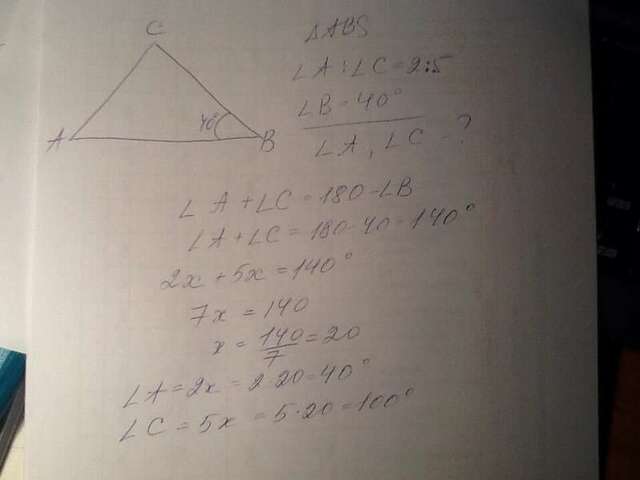 C
△ABS
∠A:∠C=2:5
∠B=40°
40
A
B
∠A, ∠C -?
∠A+∠C=180-∠B
∠A+∠C=180-40=140°
2x+5x=140°
7x=140
x=140/7=20
∠A=2x=2·20=40°
∠C=5x=5·20=100°